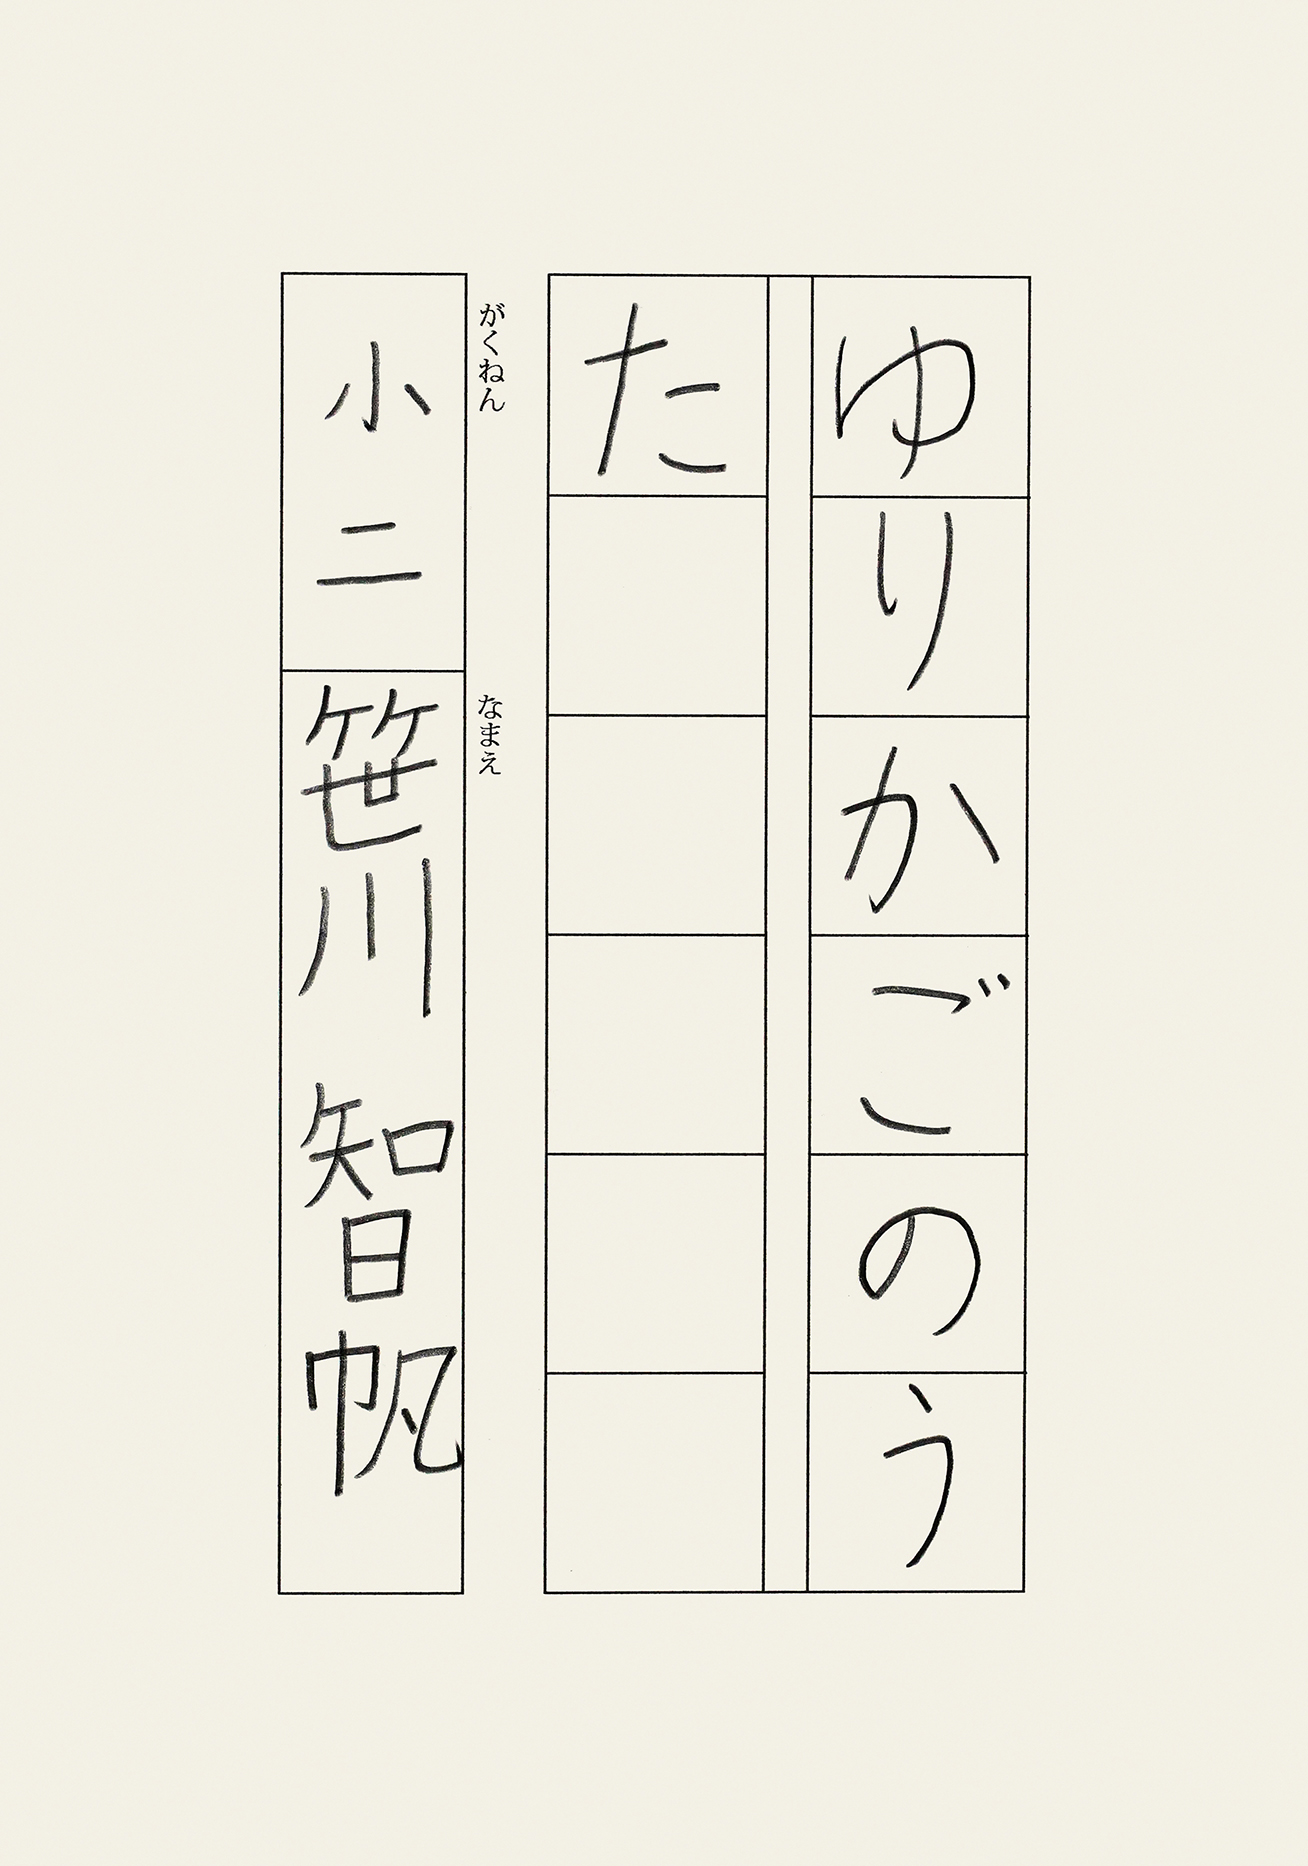 ゆりかごのう
た
がくねん
小二
なまえ
笹川 智帆